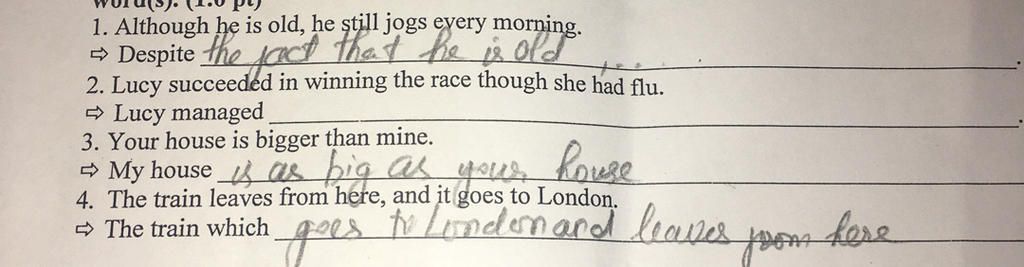 word(s). (1.0 pt)
1. Although he is old, he still jogs every morning.
⇨ Despite the fact that he is old, ... .
2. Lucy succeeded in winning the race though she had flu.
⇨ Lucy managed .
3. Your house is bigger than mine.
⇨ My house is as big as your house
4. The train leaves from here, and it goes to London.
⇨ The train which goes to London and leaves from here